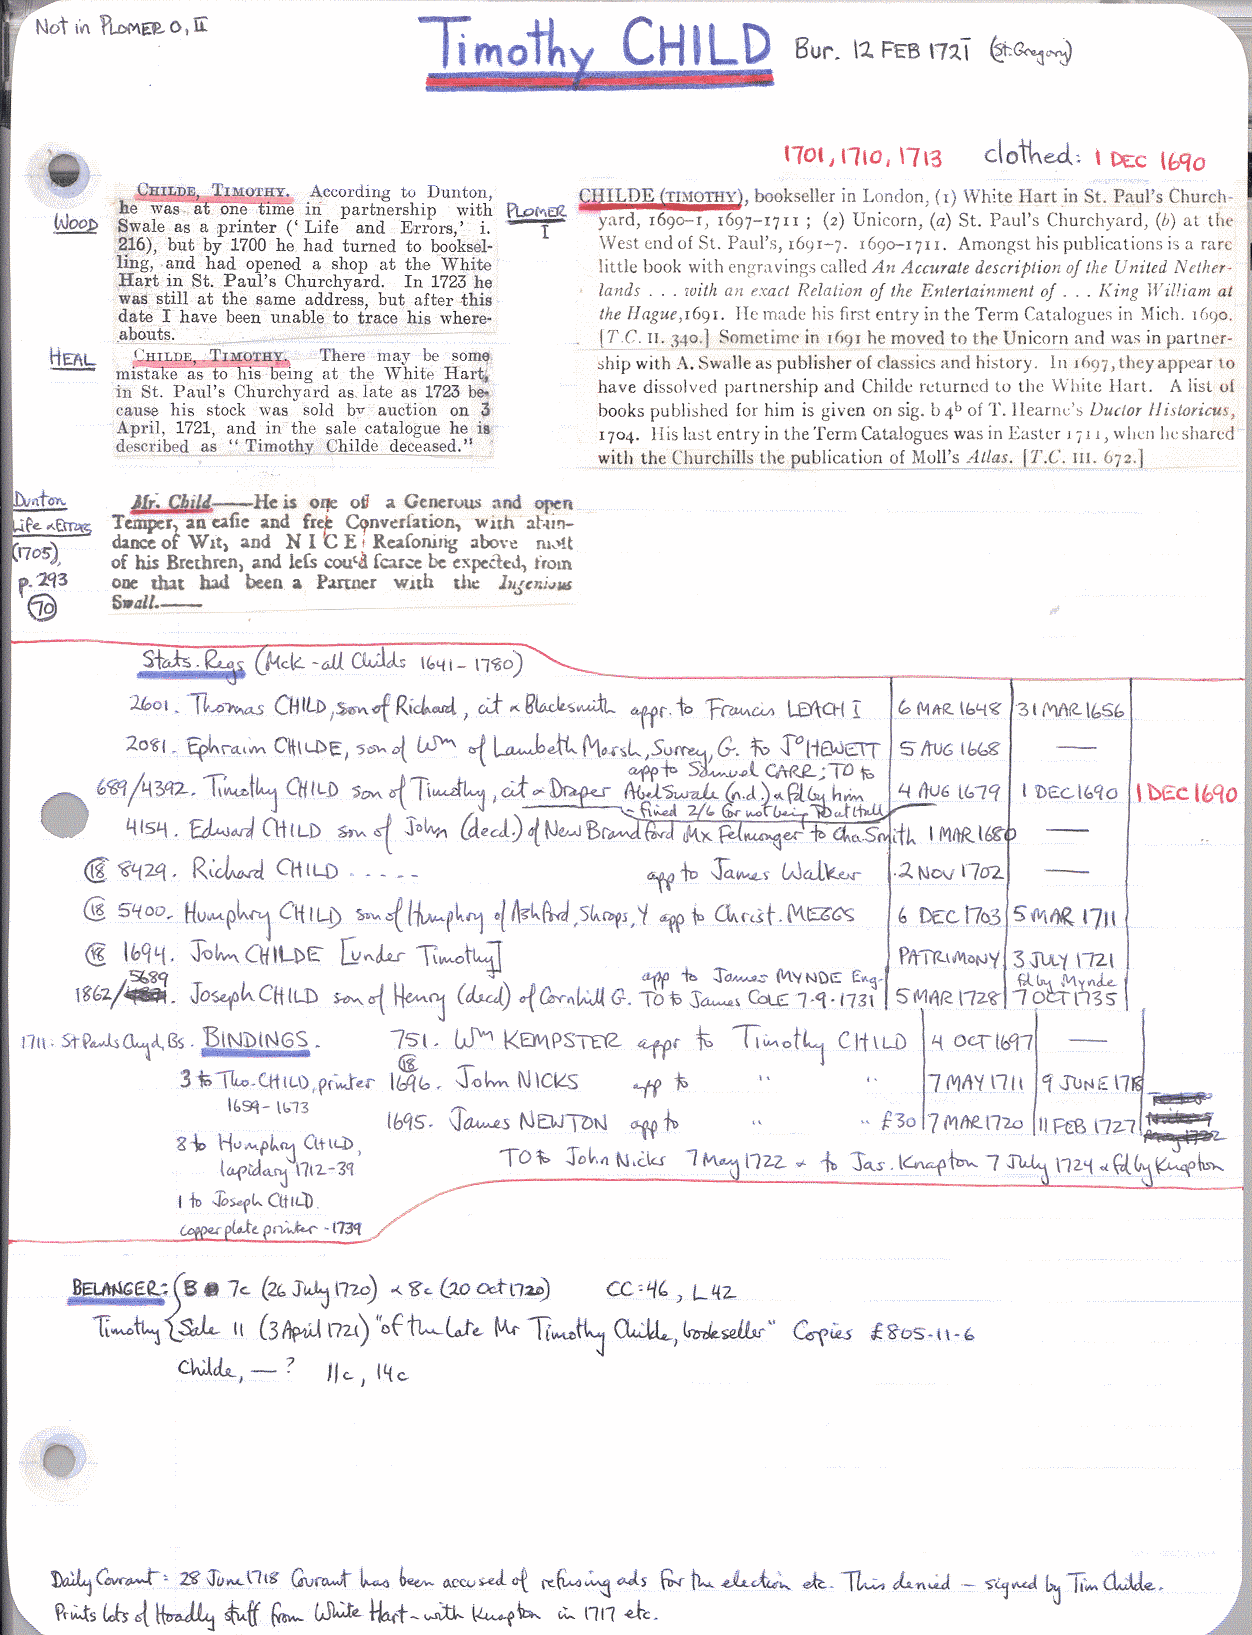 Not in PLOMER O, II
Timothy CHILD Bur. 12 FEB 1721 (St. Gregory)
1701, 1710, 1713 clothed: 1 DEC 1690
WOOD
CHILDE, TIMOTHY. According to Dunton,
he was at one time in partnership with
Swale as a printer (‘Life and Errors,’ i.
216), but by 1700 he had turned to booksel-
ling, and had opened a shop at the White
Hart in St. Paul's Churchyard. In 1723 he
was still at the same address, but after this
date I have been unable to trace his where-
abouts.
HEAL
CHILDE, TIMOTHY. There may be some
mistake as to his being at the White Hart,
in St. Paul's Churchyard as late as 1723 be-
cause his stock was sold by auction on 3
April, 1721, and in the sale catalogue he is
described as “Timothy Childe deceased.”
PLOMER
I
CHILDE (TIMOTHY), bookseller in London, (1) White Hart in St. Paul's Church-
yard, 1690-1, 1697-1711; (2) Unicorn, (a) St. Paul's Churchyard, (b) at the
West end of St. Paul's, 1691-7. 1690-1711. Amongst his publications is a rare
little book with engravings called An Accurate description of the United Nether-
lands . . . with an exact Relation of the Entertainment of . . . King William at
the Hague, 1691. He made his first entry in the Term Catalogues in Mich. 1690.
[T.C. II. 340.] Sometime in 1691 he moved to the Unicorn and was in partner-
ship with A. Swalle as publisher of classics and history. In 1697, they appear to
have dissolved partnership and Childe returned to the White Hart. A list of
books published for him is given on sig. b 4b of T. Hearne's Ductor Historicus,
1704. His last entry in the Term Catalogues was in Easter 1711, when he shared
with the Churchills the publication of Moll's Atlas. [T.C. III. 672.]
Dunton
Life & Errors
(1705),
p. 293
70
Mr. Child——He is one of a Generous and open
Temper, an easie and free Conversation, with abun-
dance of Wit, and NICE Reasoning above most
of his Brethren, and less cou'd scarce be expected, from
one that had been a Partner with the Ingenious
Swall.——
Stats. Regs (McK - all Childs 1641-1780)
2601. Thomas CHILD, son of Richard, cit & Blacksmith appr. to Francis LEACH I 6 MAR 1648 31 MAR 1656
2081. Ephraim CHILDE, son of Wm of Lambeth Marsh, Surrey, G. to Jo HEWETT 5 AUG 1668 —
app to Samuel CARR; TO to
689/4392. Timothy CHILD son of Timothy, cit & Draper Abel Swale (n.d.) & fd by him 4 AUG 1679 1 DEC 1690 1 DEC 1690
fined 2/6 for not being TO at Hall
4154. Edward CHILD son of John (decd.) of New Brandford Mx Felmonger to Cha. Smith 1 MAR 1680 —
18 8429. Richard CHILD ..... app to James Walker 2 NOV 1702 —
18 5400. Humphry CHILD son of Humphry of Ashford, Shrops, Y app to Christ. MEGGS 6 DEC 1703 5 MAR 1711
18 1694. John CHILDE [under Timothy] PATRIMONY 3 JULY 1721
5689 app to James MYNDE Eng- fd by Mynde
1862/ . Joseph CHILD son of Henry (decd) of Cornhill G. TO to James COLE 7.9.1731 5 MAR 1728 7 OCT 1735
1711: St Pauls Chyd, Bs. BINDINGS. 751. Wm KEMPSTER appr to Timothy CHILD 4 OCT 1697 —
18
3 to Tho. CHILD, printer 1696. John NICKS app to " " 7 MAY 1711 9 JUNE 1718
1659-1673
1695. James NEWTON app to " " £30 7 MAR 1720 11 FEB 1727
8 to Humphry CHILD,
lapidary 1712-39
TO to John Nicks 7 May 1722 & to Jas. Knapton 7 July 1724 & fd by Knapton
1 to Joseph CHILD.
copper plate printer - 1739
BELANGER: B 7c (26 July 1720) & 8c (20 Oct 1720) CC:46, L42
Timothy Sale 11 (3 April 1721) "of the late Mr Timothy Childe, bookseller" Copies £805-11-6
Childe, —? 11c, 14c
Daily Courant: 28 June 1718 Courant has been accused of refusing ads for the election etc. This denied — signed by Tim Childe.
Prints lots of Hoadly stuff from White Hart - with Knapton in 1717 etc.